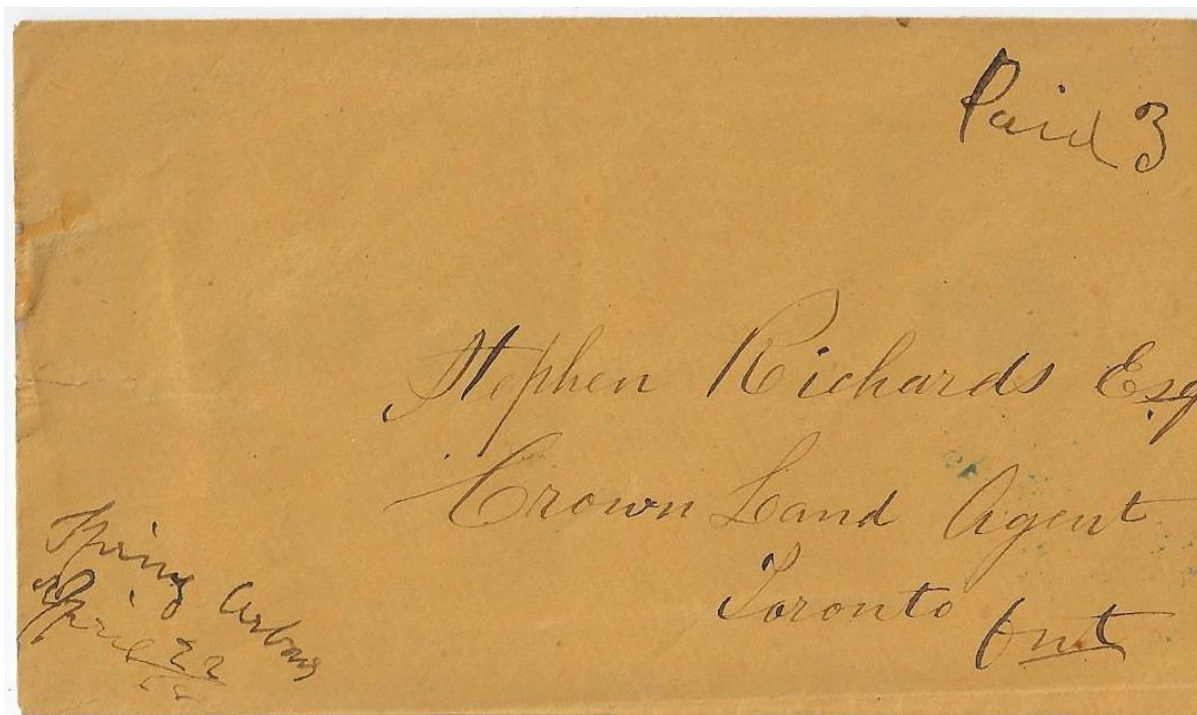 Paid 3
Stephen Richards Esq
Crown Land Agent
Toronto Ont
Spring Arbour
April 22